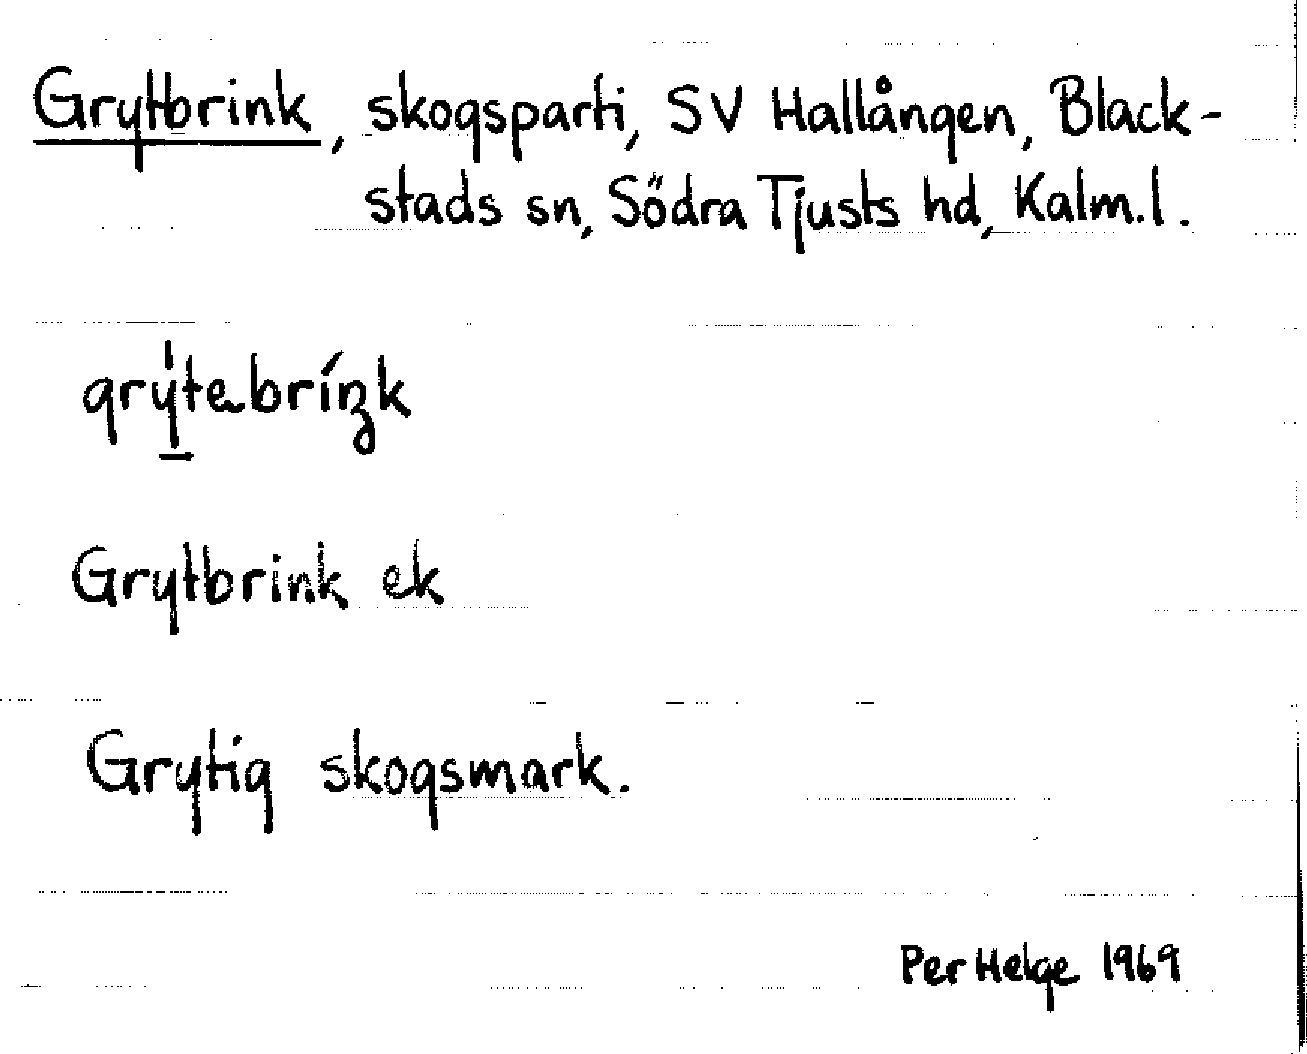 Grytbrink, skogsparti, SV Hallången, Black-
stads sn, Södra Tjusts hd, Kalm.l.
grýtabríŋk
Grytbrink ek
Grytig skogsmark.
Per Helge 1969